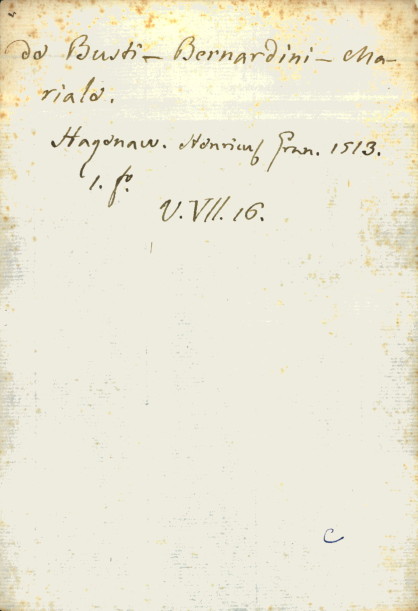 de Busti – Bernardini – Ma-
riale.
Hagenaw. Henricus Gran. 1513.
1. fo.
V. VII. 16.
C